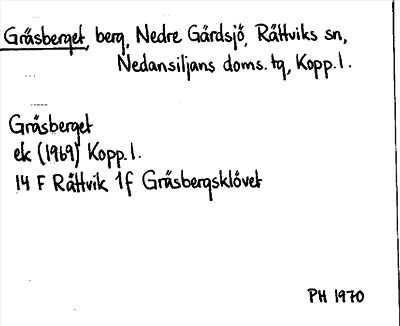 Gråsberget, berg, Nedre Gärdsjö, Rättviks sn,
Nedansiljans doms. tg, Kopp. l.
Gråsberget
ek (1969) Kopp. l.
14 F Rättvik 1f Gråsbergsklövet
PH 1970